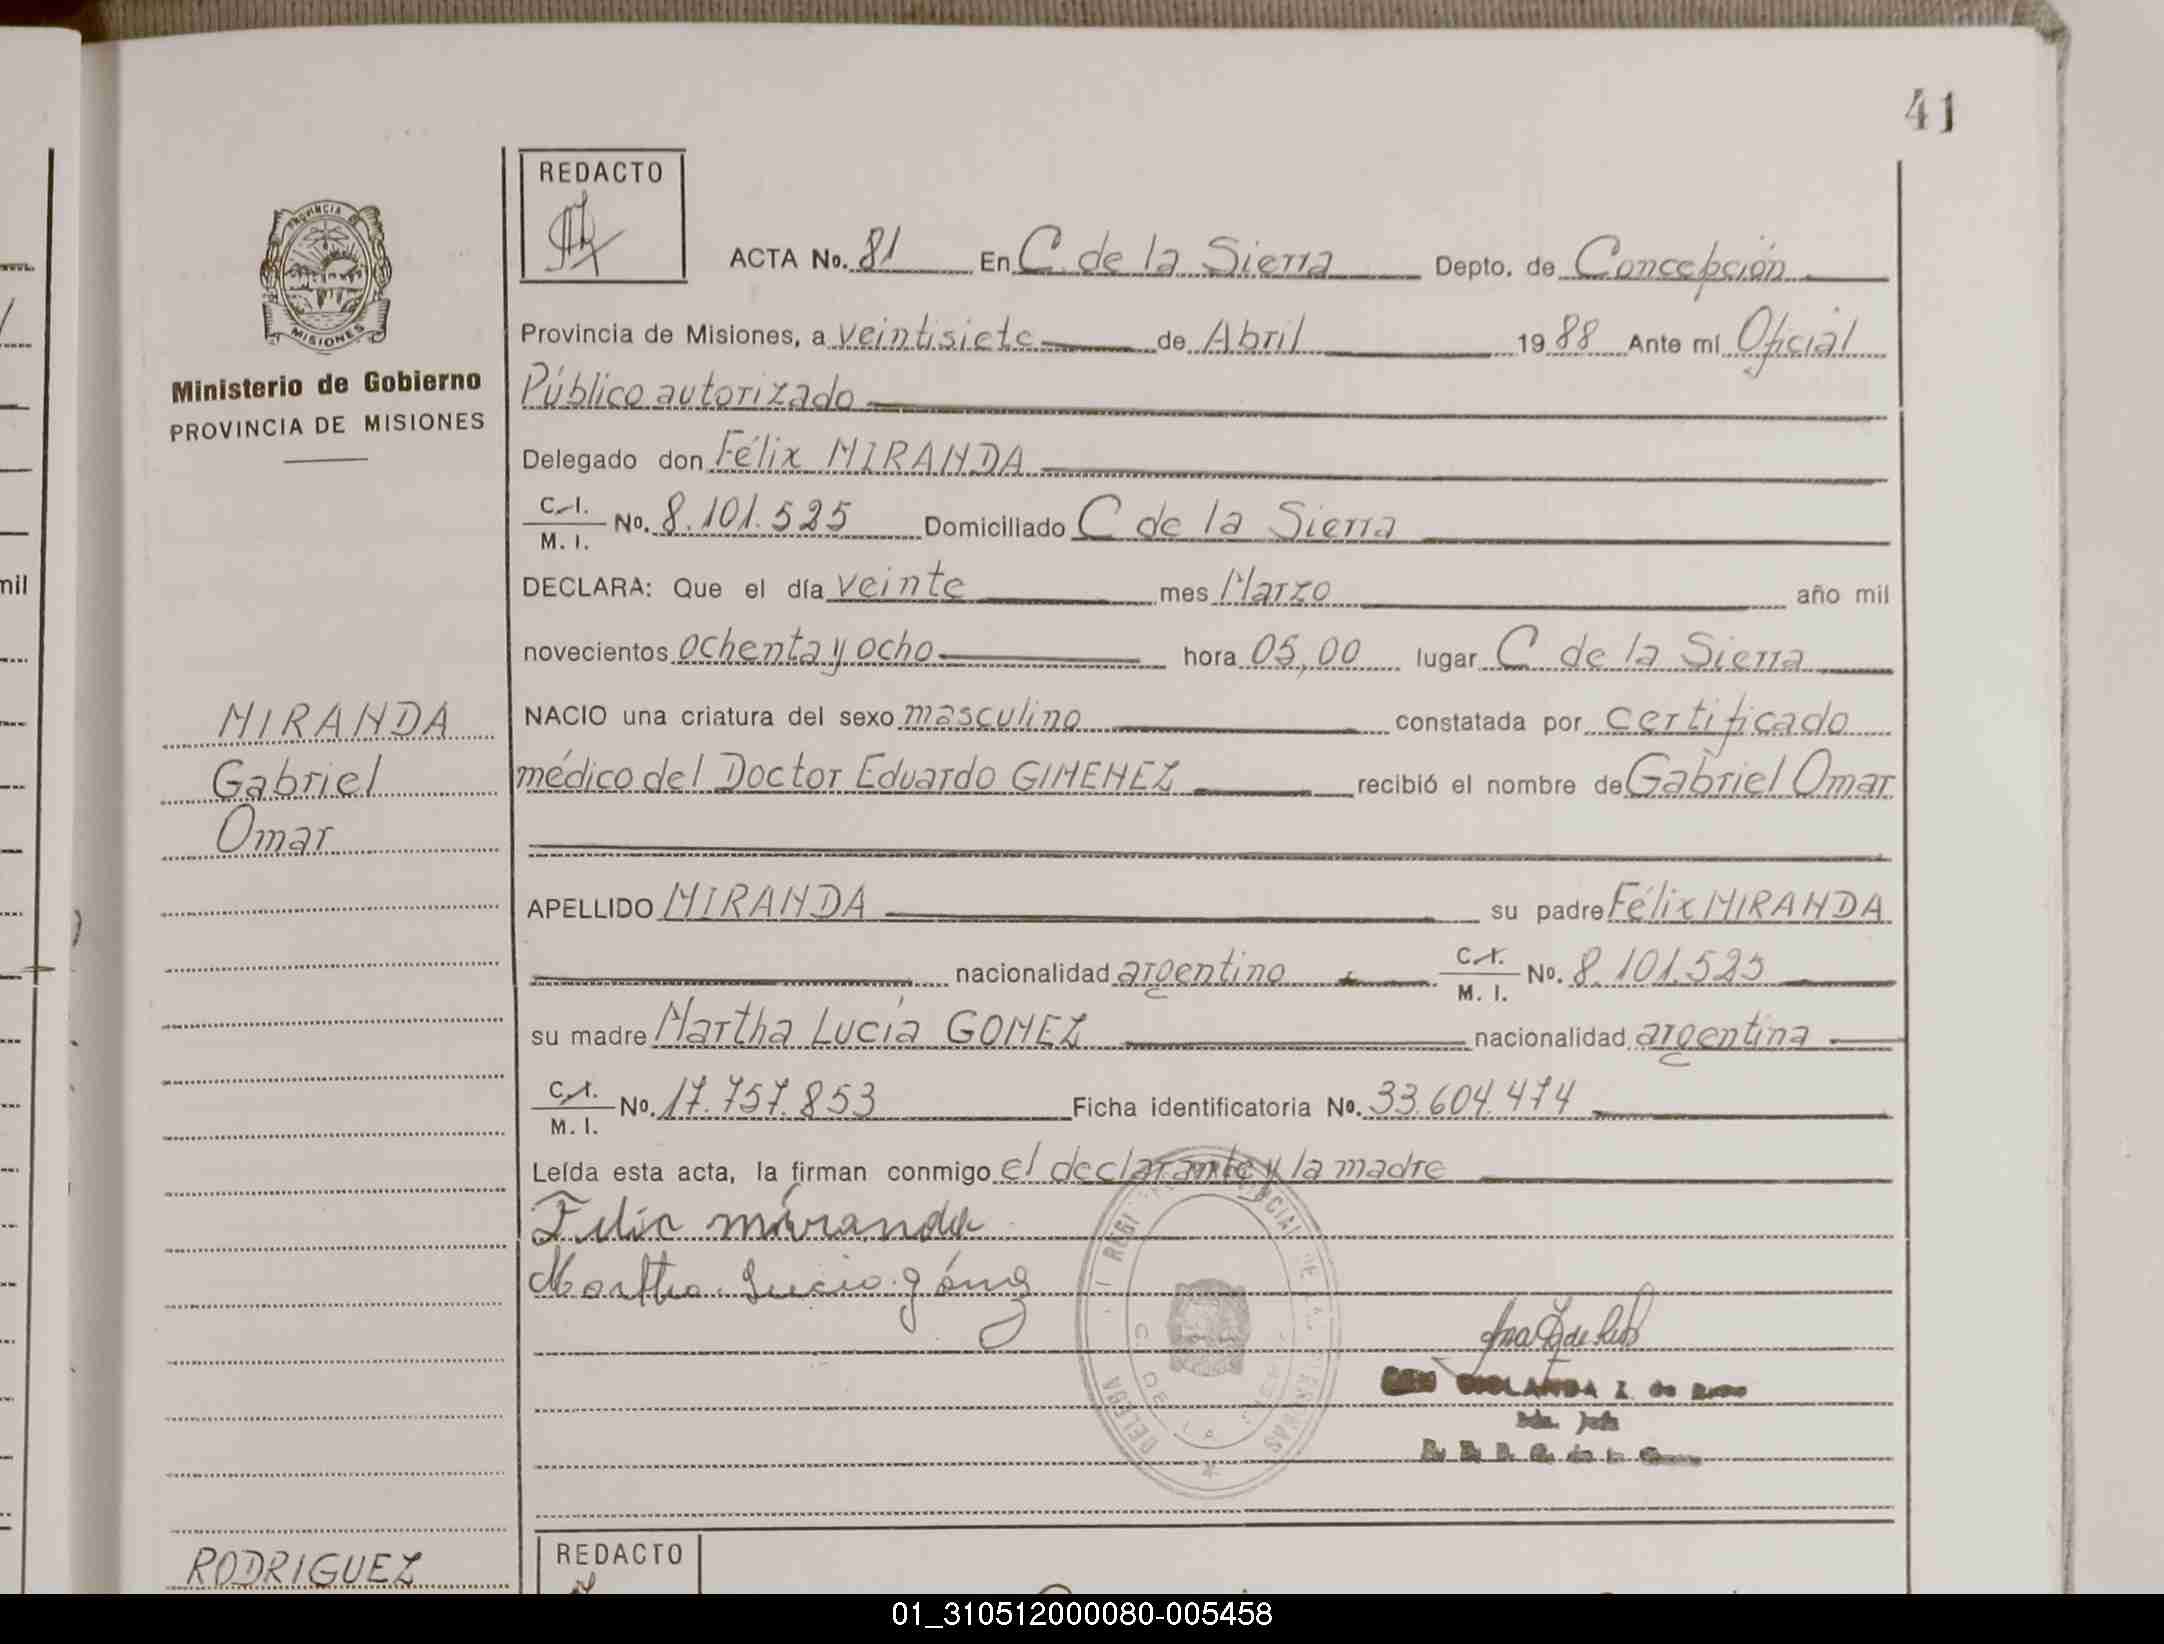 41
REDACTO
ACTA No. 81 En C. de la Sierra Depto. de Concepción
PROVINCIA DE
MISIONES
Ministerio de Gobierno
PROVINCIA DE MISIONES
Provincia de Misiones, a veintisiete de Abril 1988 Ante mí Oficial
Público autorizado
Delegado don Félix MIRANDA
C.I. M. I. No. 8.101.525 Domiciliado C de la Sierra
DECLARA: Que el día veinte mes Marzo año mil
novecientos ochenta y ocho hora 05,00 lugar C de la Sierra
NACIO una criatura del sexo masculino constatada por certificado
médico del Doctor Eduardo GIMENEZ recibió el nombre de Gabriel Omar
MIRANDA
Gabriel
Omar
APELLIDO MIRANDA su padre Félix MIRANDA
nacionalidad argentino C.I. M. I. No. 8.101.525
su madre Martha Lucía GOMEZ nacionalidad argentina
C.I. M. I. No. 17.757.853 Ficha identificatoria No. 33.604.474
Leída esta acta, la firman conmigo el declarante y la madre
Felix miranda
Martha Lucia gómez
RODRIGUEZ
REDACTO
mil
01_310512000080-005458